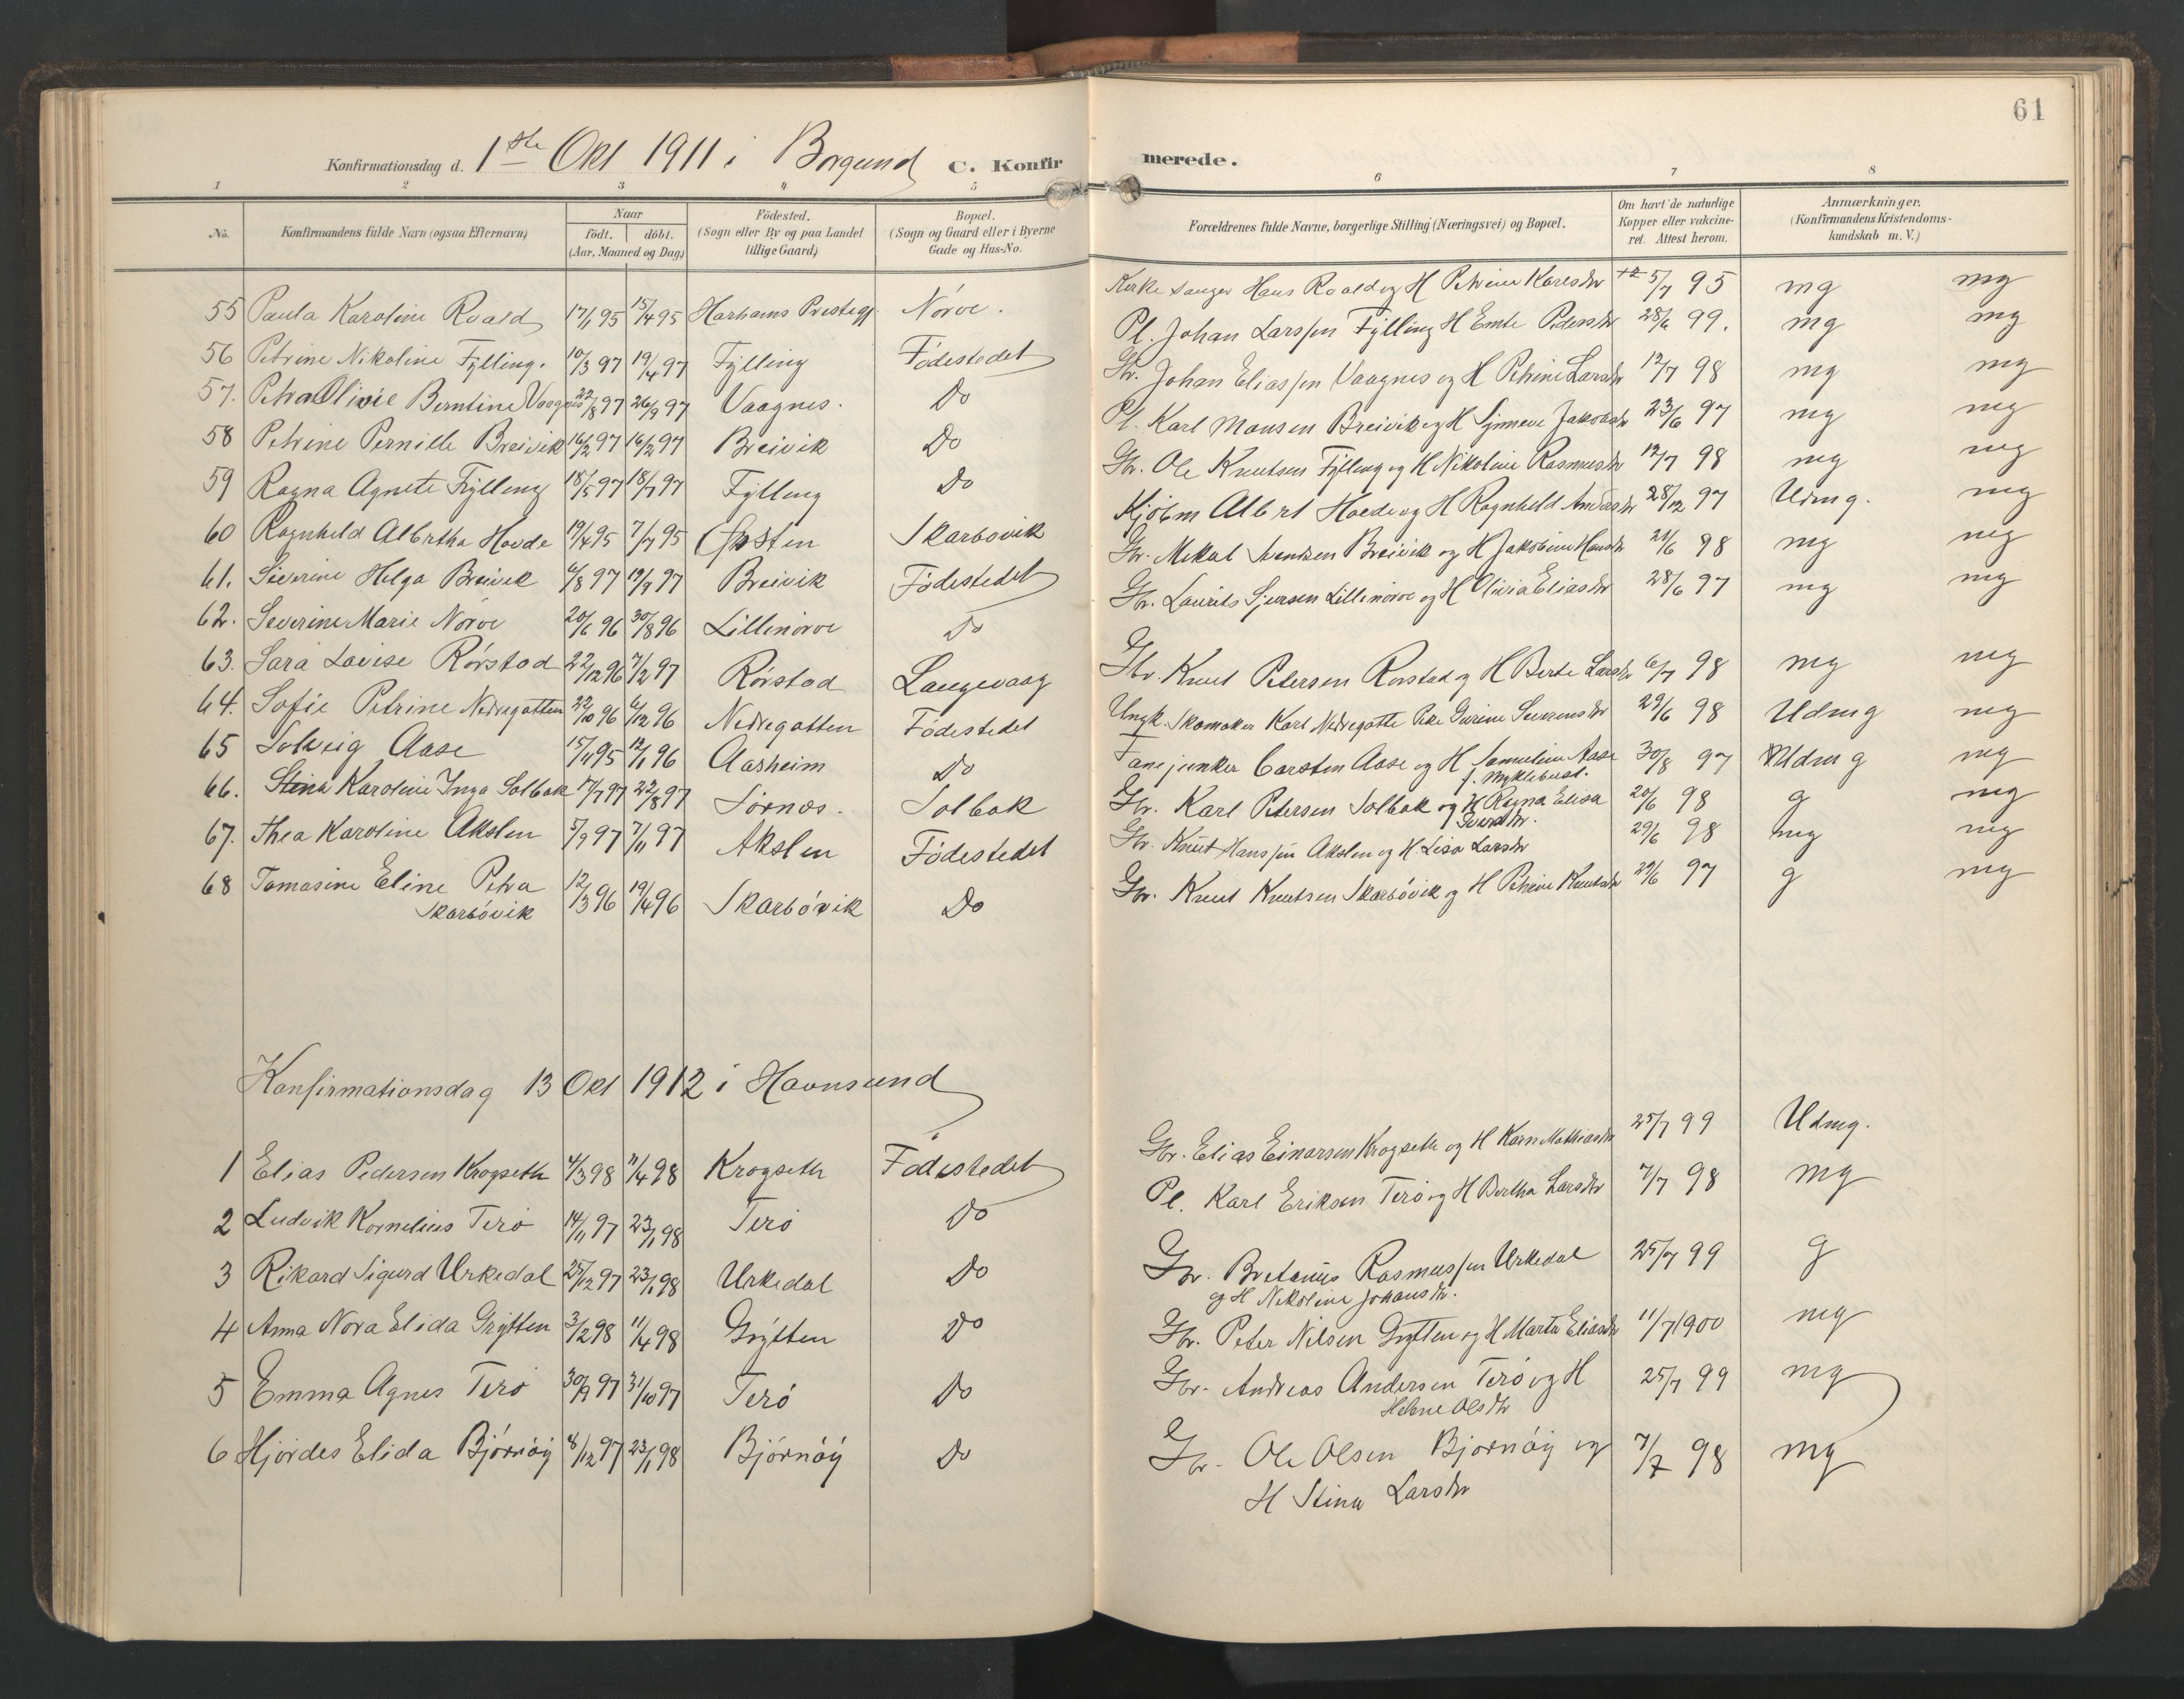 61
Konfirmationsdag d. 1ste Okt 1911 i Borgund C. Konfirmerede.
1 2 3 4 5 6 7 8
No. Konfirmandens fulde Navn (ogsaa Efternavn) Naar födt. döbt. (Aar, Maaned og Dag) Födested. (Sogn eller By og paa Landet tillige Gaard) Bopæl. (Sogn og Gaard eller i Byerne Gade og Hus-No. Forældrenes fulde Navne, borgerlige Stilling (Næringsvei) og Bopæl. Om havt de naturlige Kopper eller vakcineret. Attest herom. Anmærkninger. (Konfirmandens Kristendomskundskab m. V.)
55 Paula Karoline Roald 17/1 95 15/4 95 Harhams Prestegj Nörve. Kirkesanger Hans Roald og H Petrine Karlsdtr 5/7 95 mg mg
56 Petrine Nikoline Fylling. 10/3 97 19/4 97 Fylling Födestedet Pl. Johan Larssen Fylling H Emte Pedersdtr 28/6 99. mg mg
57. Petra Olivie Berntine Vaagnes 22/8 97 26/9 97 Vaagnes. Do Gbr. Johan Eliassen Vaagnes og H Petrine Larsdtr 12/7 98 mg mg
58 Petrine Pernille Breivik 16/2 97 16/2 97 Breivik Do Pl. Karl Monsen Breivik og H Synneve Jakobsdtr 23/6 97 mg mg
59 Ragna Agnete Fylling 18/5 97 18/7 97 Fylling Do Gbr. Ole Knutsen Fylling og H Nikoline Rasmusdtr 12/7 98 mg mg
60 Ragnhild Albertha Hovde 19/4 95 7/7 95 Skarbövik Kjöbm Albert Hovde og H Ragnhild Andersdtr 28/12 97 Udmg. mg
61. Siverine Helga Breivik 6/8 97 19/9 97 Breivik Födestedet Gbr. Mikal Svendsen Breivik og H Jakobine Hansdtr 21/6 98 mg mg
62. Severine Marie Nörve 20/6 96 30/8 96 Lillenörve Do Gbr. Laurits Sjursen Lillenörve og H Olivia Eliasdtr 28/6 97 mg mg
63. Sara Lovise Rörstad 22/12 96 7/2 97 Rörstad Langevaag Gbr. Knut Petersen Rörstad og H Berte Larsdtr 6/7 98 mg mg
64. Sofie Petrine Nedregotten 22/10 96 6/12 96 Nedregotten Födestedet Ungk. Skomaker Karl Nedregotte Pike Gurine Severinsdtr 29/6 98 Udmg mg
65 Solveig Aase 15/11 95 12/1 96 Aasheim Do Fanejunker Carsten Aase og H Samueline Aase f. Myklebust. 30/8 97 Udmg mg
66. Stina Karoline Inga Solbak 17/7 97 22/8 97 Sörnes. Solbak Gbr. Karl Petersen Solbak og H Ragna Elisa Iversdtr. 20/6 98 g mg
67. Thea Karoline Akslen 5/9 97 7/11 97 Akslen Födestedet Gbr. Knut Hanssen Akslen og H. Lisa Larsdtr 29/6 98 mg mg
68 Tomasine Eline Petra Skarbövik 12/3 96 19/4 96 Skarbövik Do Gbr. Knut Knutsen Skarbövik og H Petrine Knutsdtr 29/6 97 g mg
Konfirmationsdag 13 Okt 1912 i Havnsund
1 Elias Pedersen Krogseth 4/3 98 11/4 98 Krogseth Födestedet Gbr. Elias Einarsen Krogseth og H Karn Mathiasdtr 25/7 99 Udmg.
2 Ludvik Kornelius Terö 14/11 97 23/1 98 Terö Do Pl. Karl Eriksen Terö og H Bertha Larsdtr 7/7 98 mg
3 Rikard Sigurd Urkedal 25/12 97 23/1 98 Urkedal Do Gbr. Bretanus Rasmussen Urkedal og H Nikoline Johansdtr. 25/7 99 g
4 Anna Nora Elida Grytten 3/2 98 11/4 98 Grytten Do Gbr. Peter Nilsen Grytten og H Marte Eliasdtr 11/7 1900 mg
5 Emma Agnes Terö 30/9 97 31/10 97 Terö Do Gbr. Andreas Andersen Terö og H Helene Olsdtr 25/7 99 mg
6 Hjördes Elida Björnöy 8/12 97 23/1 98 Björnöy Do Gbr. Ole Olsen Björnöy og H Stina Larsdtr 7/7 98 mg